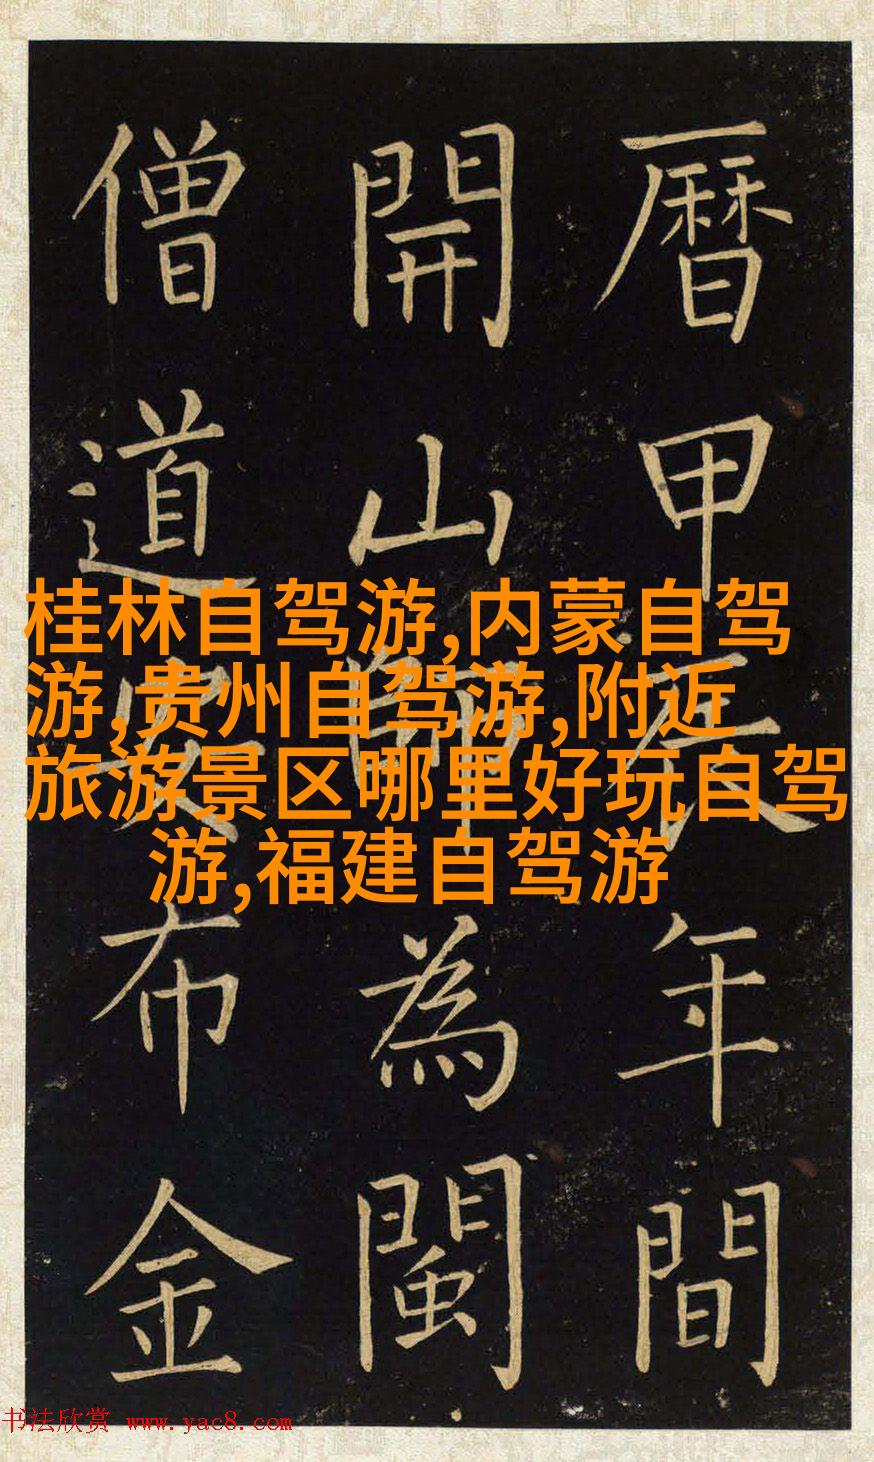 曆甲辰年間
開山師為閩
僧道安布金
桂林自驾游,内蒙自驾
游,贵州自驾游,附近
旅游景区哪里好玩自驾
游,福建自驾游
书法欣赏 www.yac8.com